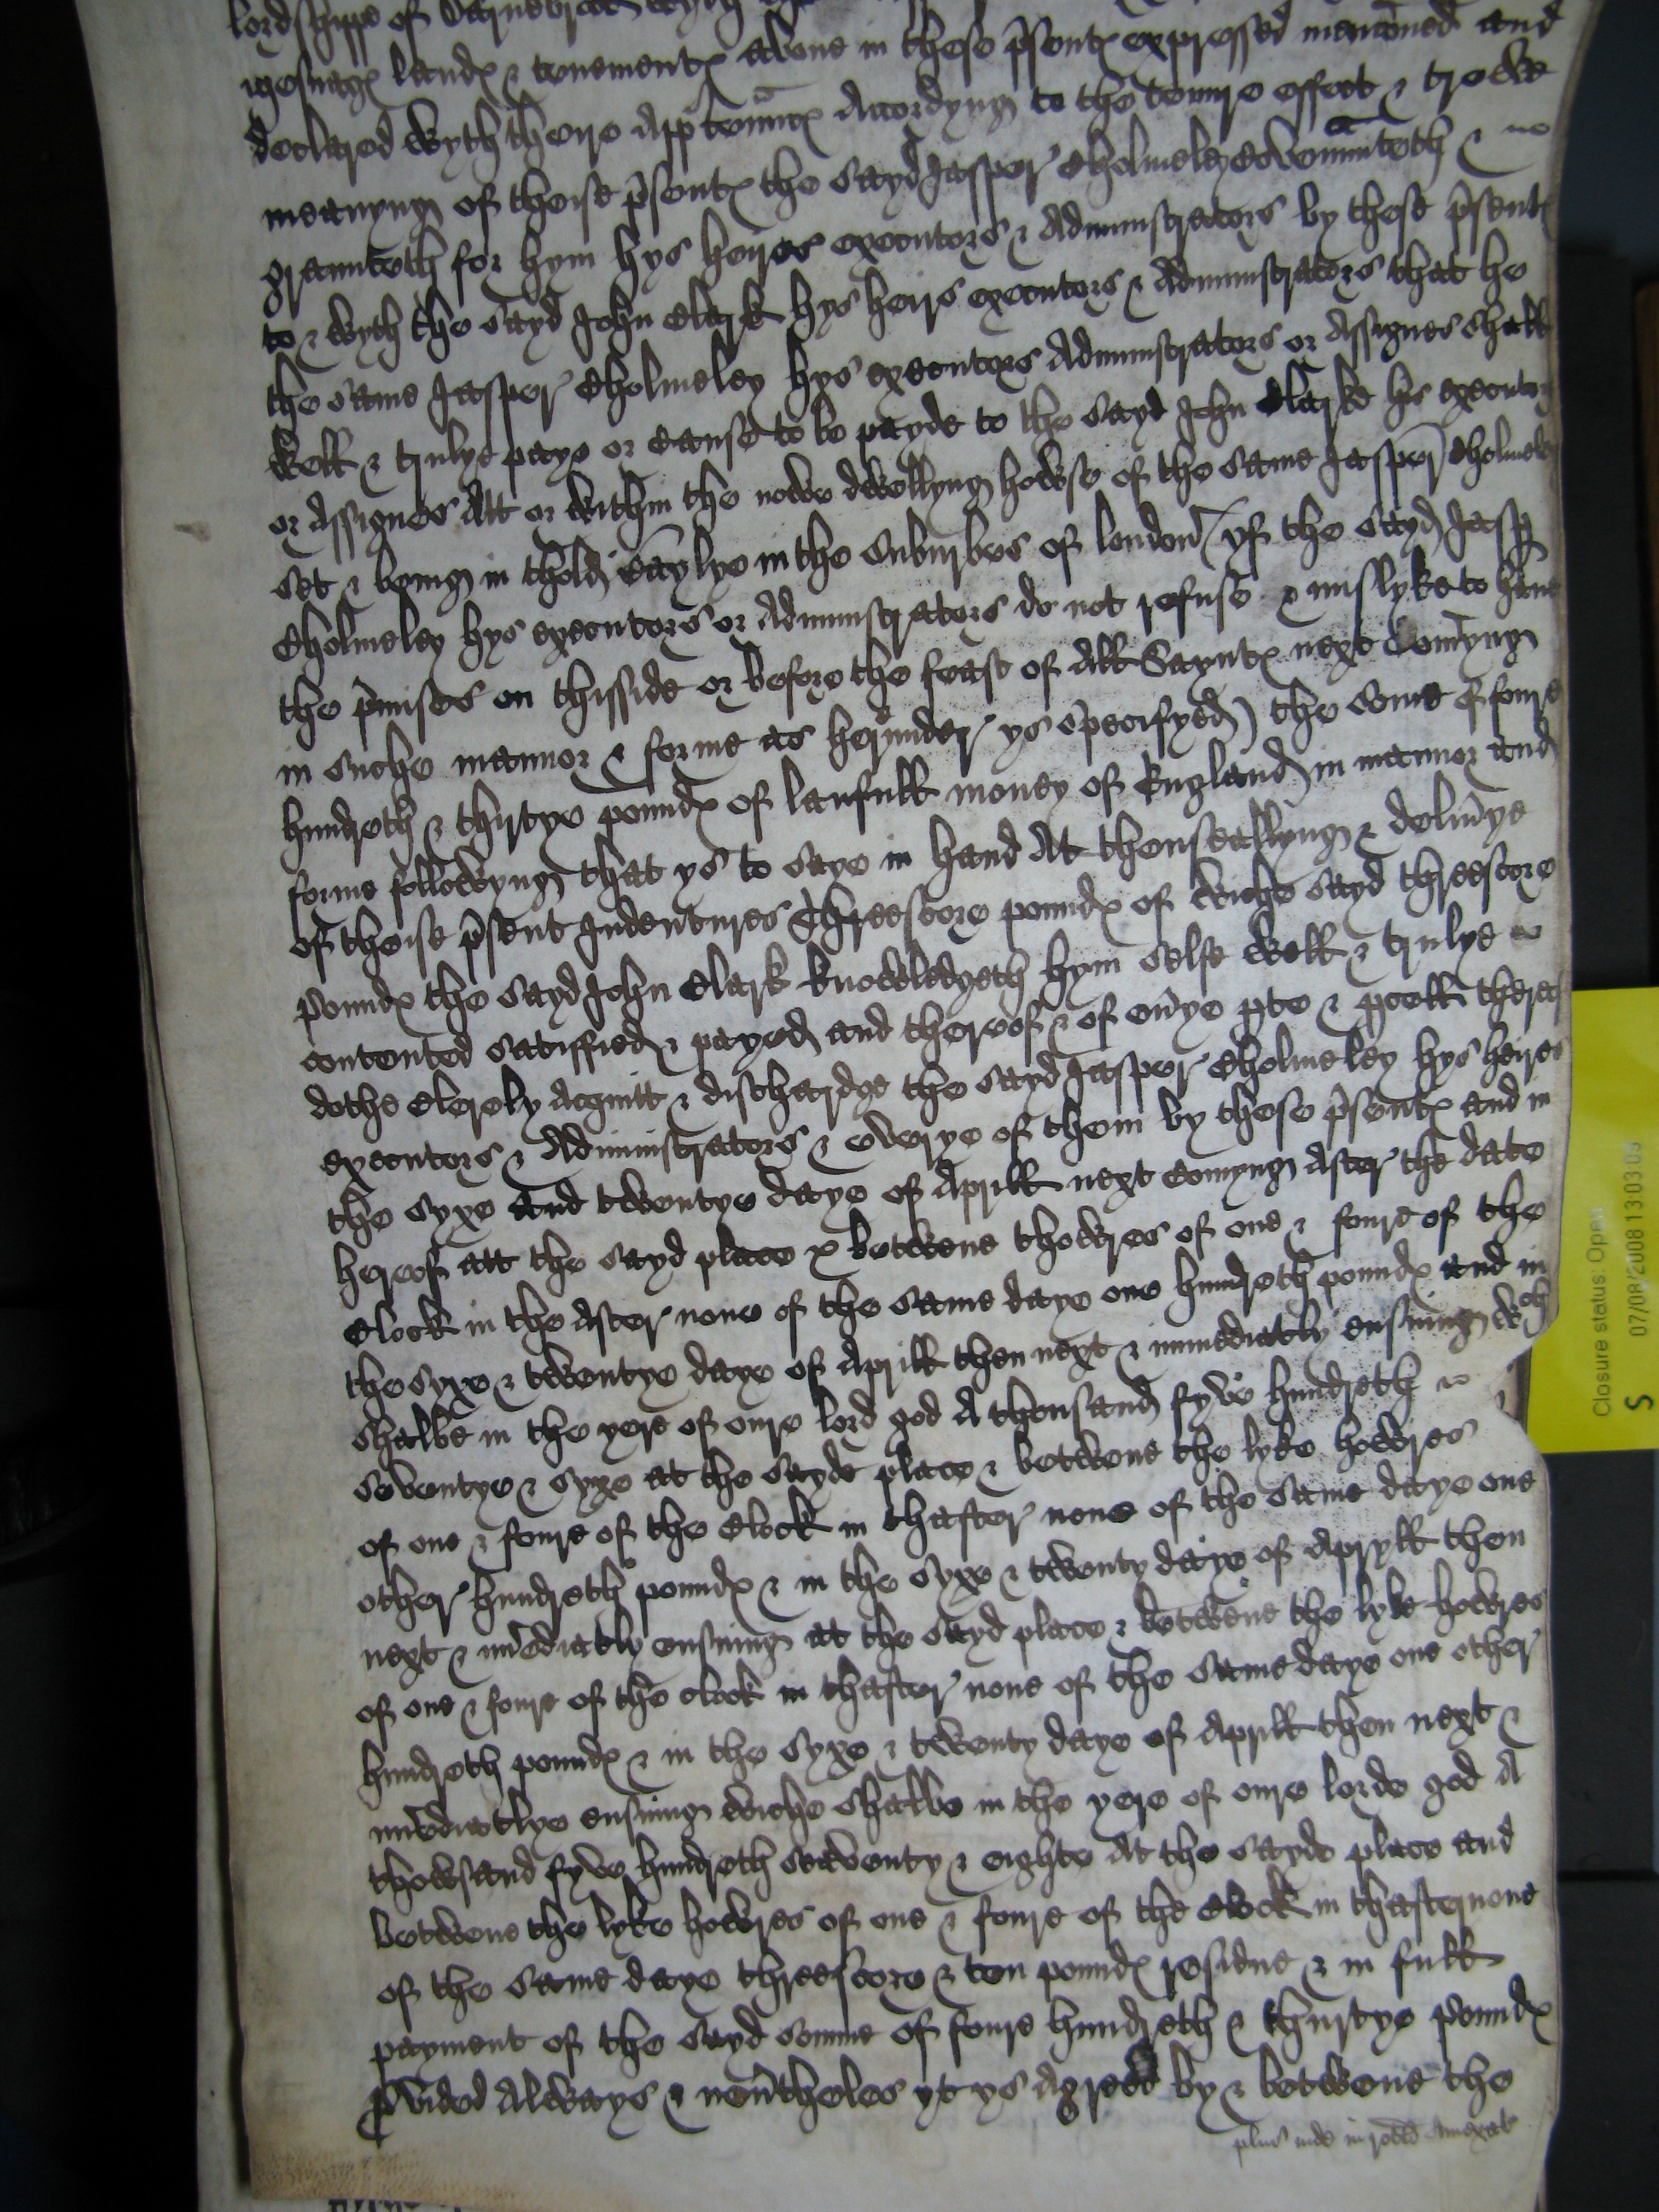 lordshippe of
mesuages landes & tenementes above in these p'sentes expressed mencioned and
declared wyth theire appurten'nces Accordyng to the tenure effect & trewe
meanyng of theise p'sentes the sayd Jasper Cholmeley covennteth & no
graunteth for hym hys heires executors & Administrators by these p'sentes
to & wyth the sayd John Clark hys heirs executors & Administrators that he
the same Jasper Cholmeley hys executors Administrators or Assignes shall
well & trulye paye or cause to be payde to the sayd John Clarke his executors
or Assignes Att or within the nowe dwellyng howse of the same Jasper Cholmeley
set & being in thold Baylye in the Suburbes of london (yf the sayd Jasp
Cholmeley hys executors or Administrators do not refuse & mislyke to have
the p'mises on thisside or before the feast of All Sayntes next Comyng
in suche mannor & forme as her'under ys specifyed) the some of foure
hundreth & thirtye poundes of laufull money of England in mannor and
forme followyng that ys to saye in hand At thensealling & deliu'ye
of theise p'sent Indentures Threescore poundes of wiche sayd threescore
poundes the sayd John Clark knowledgeth hym selfe well & trulye
contented satisfied & payed and thereof & of eu'ye p'te & p'cell thereof
dothe clerely Acquitt & dischardge the sayd Jasper Cholmeley hys heires
executors & Administrators & everye of them by these p'sentes and in
the syxe and twentye daye of Aprill next comyng After the date
hereof att the sayd place & betwene thowres of one & foure of the
Clock in the After none of the same daye one hundreth poundes and in
the syxe & twentye daye of Aprill then next & immediatly ensuing wch
shalbe in the yere of oure lord god A thousand fyve hundreth
seventye & syxe at the sayde place & betwene the lyke howres
of one & foure of the Clock in thafter none of the same daye one
other hundreth poundes & in the syxe & twenty daye of Apryll then
next & im'ediatly ensuing at the sayd place & betwene the lyke howres
of one & foure of the clock in thafter none of the same daye one other
hundreth poundes & in the syxe & twenty daye of Aprill then next &
im'ediatlye ensuing wiche shalbe in the yere of oure lorde god A
thowsand fyve hundreth seaventy & eighte At the sayde place and
betwene the lyke howres of one & foure of the Clock in thafternone
of the same daye threescore & ten poundes residue & in full
payment of the sayd somme of foure hundreth & thirtye poundes
P'vided Alwayes & neu'theles yt ys Agreed by & betwene the
plus inde in
Closure status: Open
07/08/2008 13:03:03
S